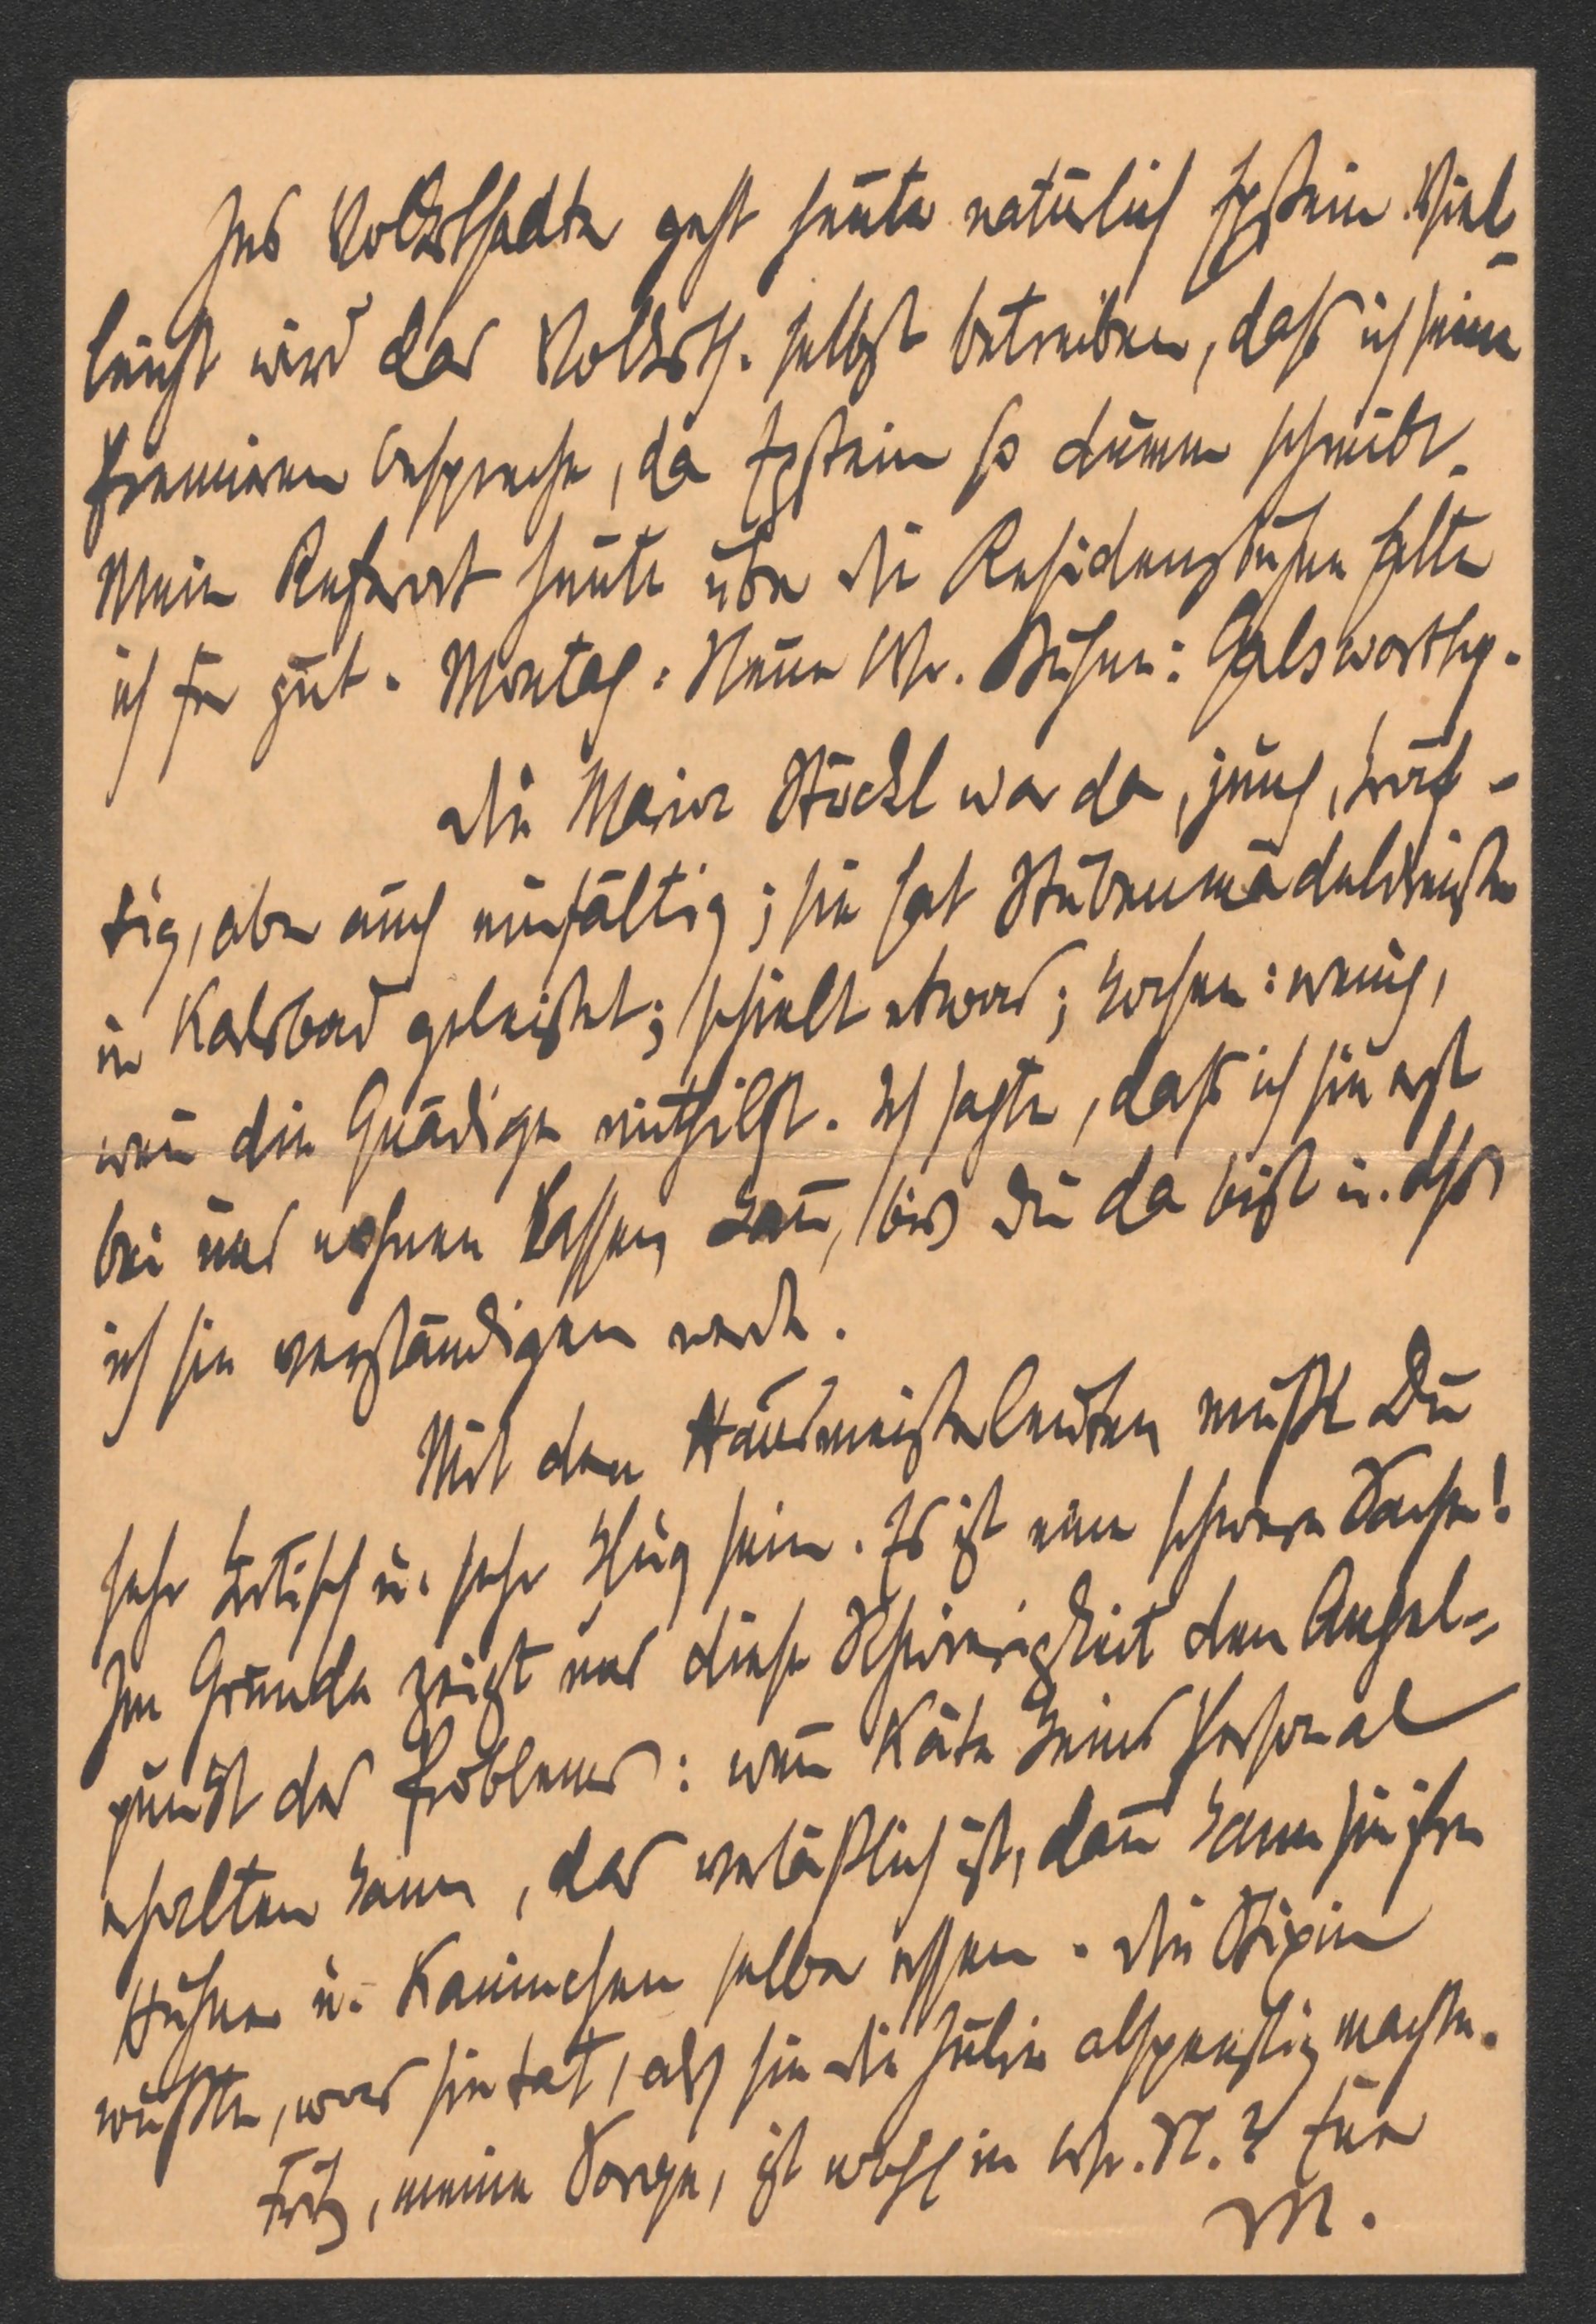 Ins Volksthe­ater geht heute natürlich Epstein. Viel-
leicht wird das Volksth. selbst betreiben, daß ich seine
Premieren bespreche, da Epstein so dumm schreibt.
Mein Referat heute über die Residenzbühne halte
ich für gut. Montag: Neue Wr. Bühne: Galsworthy.
Die Marie Stöckl war da, jung, kräf-
tig, aber auch einfältig; sie hat Stubenmädeldienste
in Karlsbad geleistet; schielt etwas; kochen: wenig,
wen̄ die Gnädige mithilft. Ich sagte, daß ich sie erst
bei uns wohnen lassen kan̄, bis Du da bist u. dß
ich sie verständigen werde.
Mit den Hausmeisterleuten mußt Du
sehr kritisch u. sehr klug sein. Es ist eine schwere Sache!
Im Grunde zeigt uns diese Schwierigkeit den Angel-
punkt des Problems: wen̄ Käte keines Personal
erhalten kann, das verläßlich ist, dan̄ kann sie ihre
Hühner u. Kaninchen selber essen. Die
wußte, was sie tat, als sie die Julie abspenstig machte.
Fritz, meine Sorge, ist wohl in Wr. N.?
M.